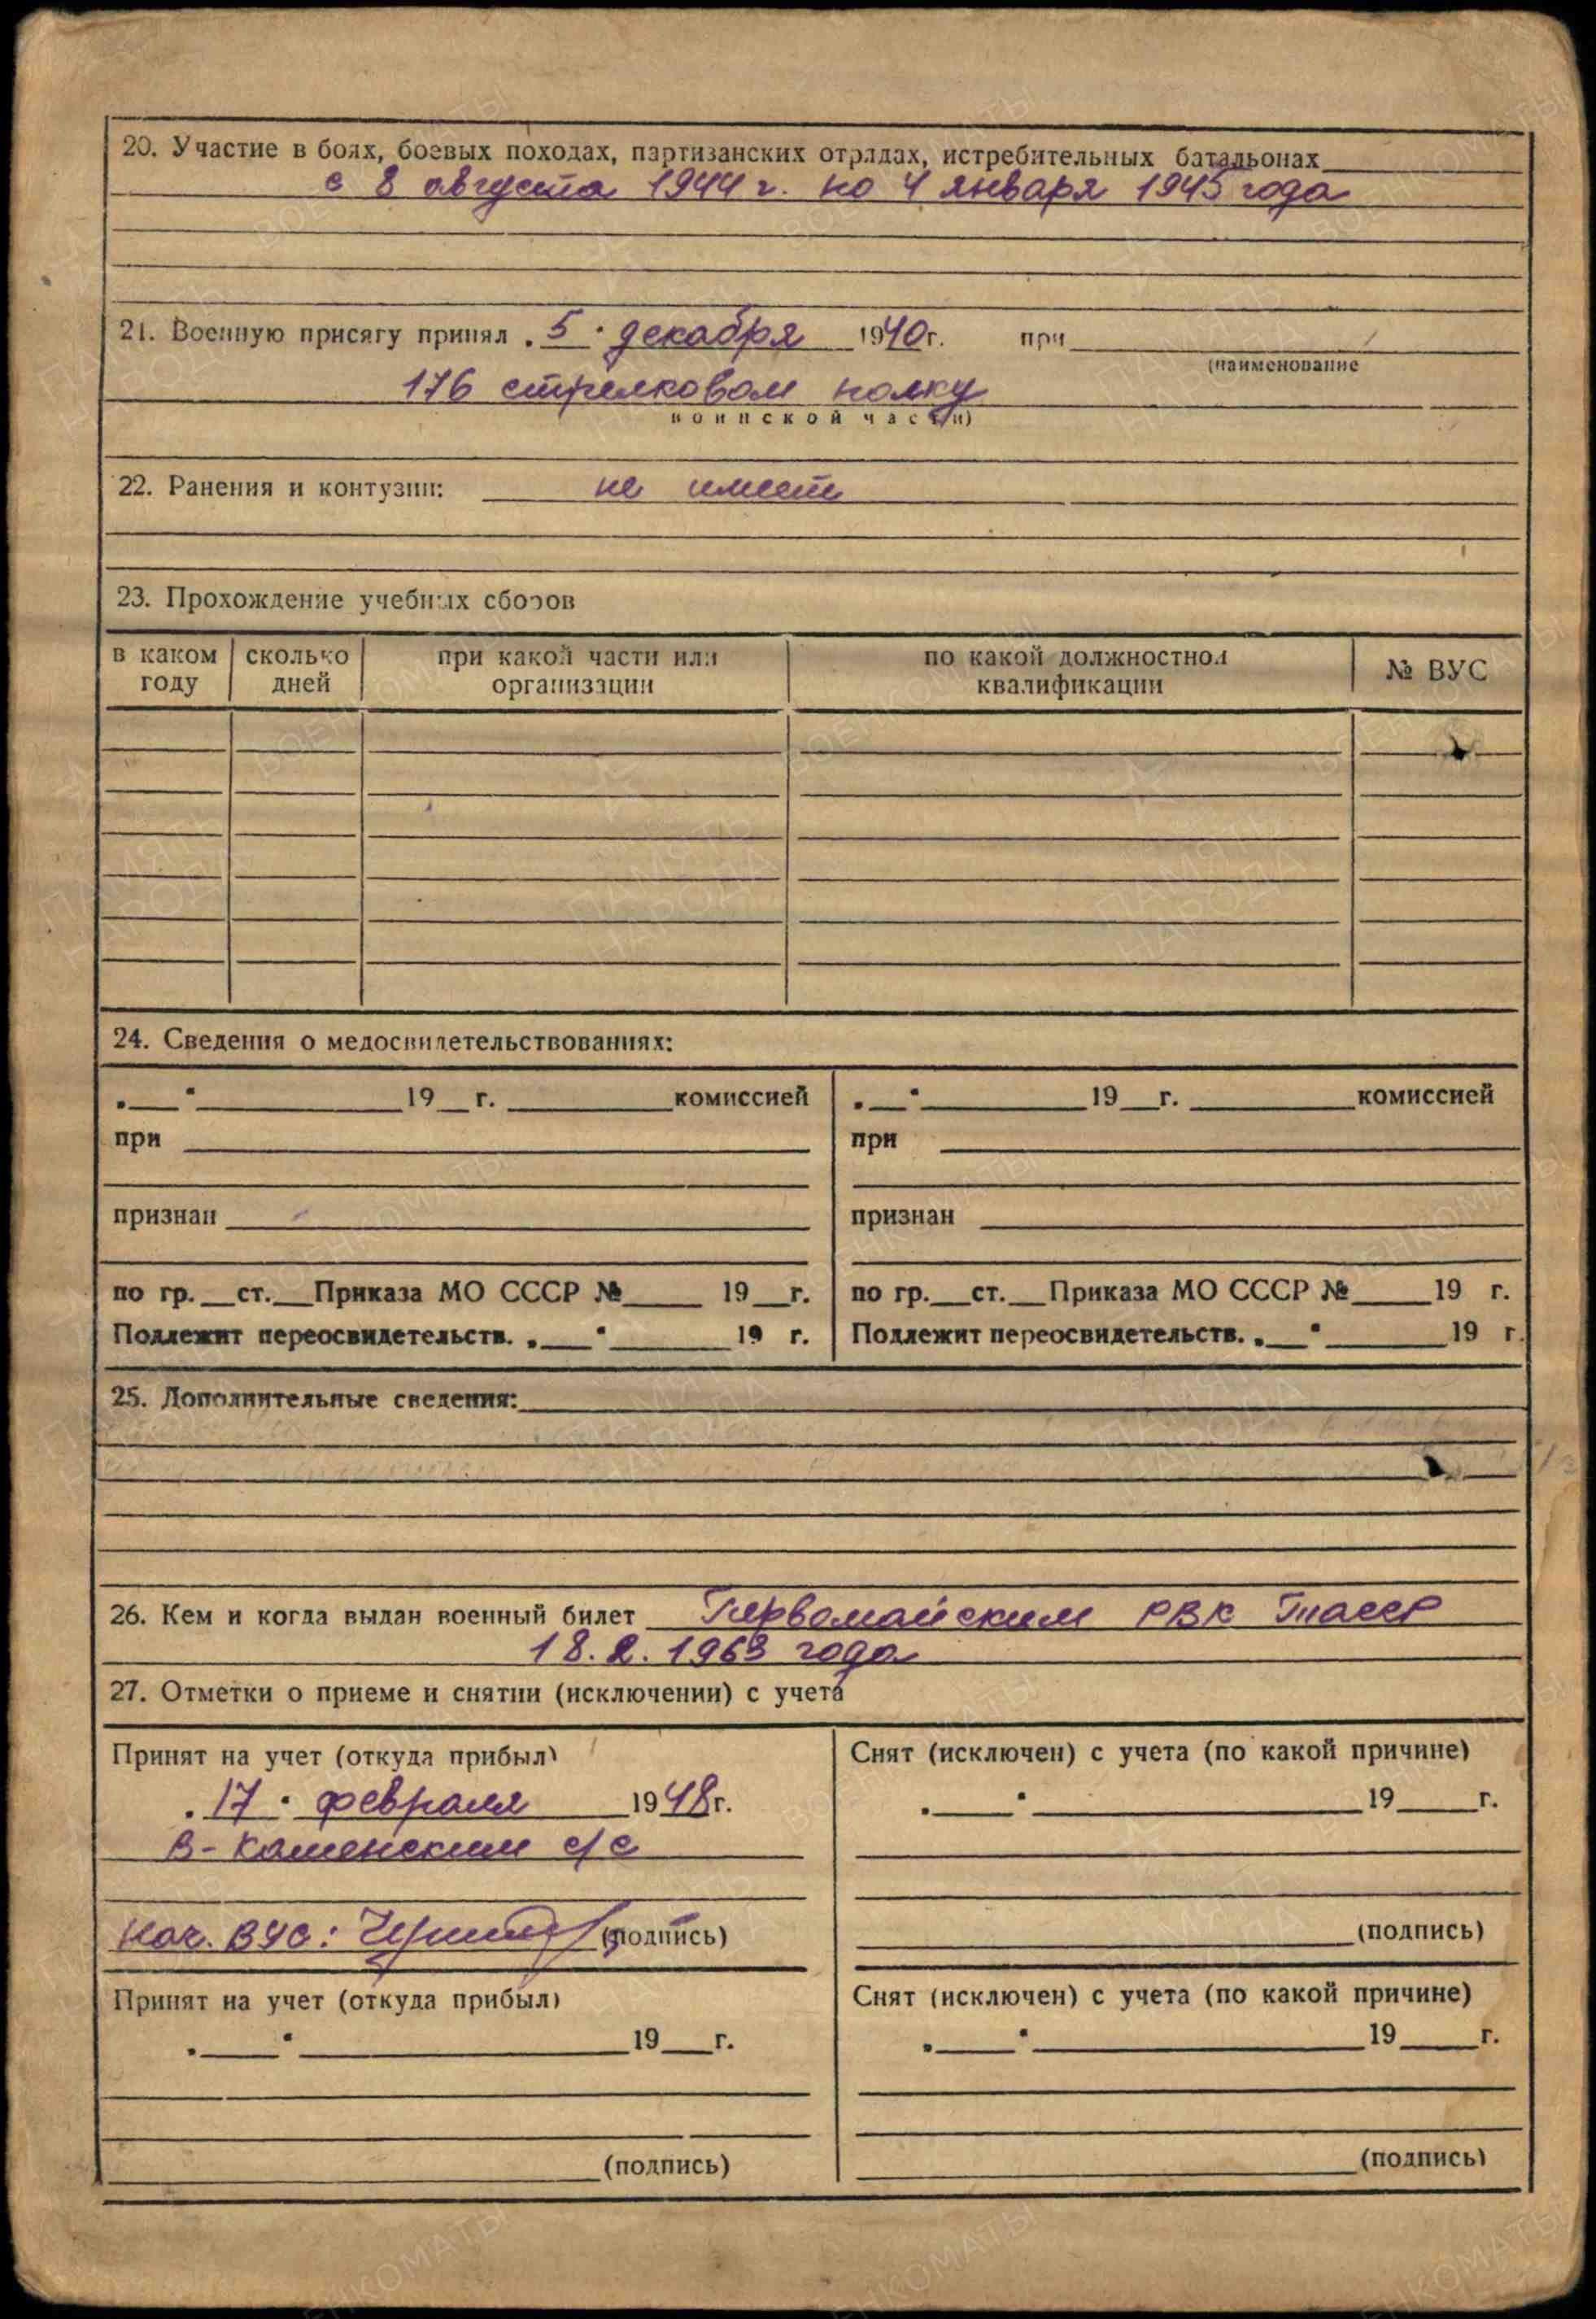 20. Участие в боях, боевых походах, партизанских отрядах, истребительных батальонах
с 8 августа 1944 г. по 4 января 1945 года
21. Военную присягу принял „5“ декабря 1940г. при
(наименование
176 стрелковом полку
воинской части)
22. Ранения и контузии: не имеет
23. Прохождение учебных сборов
в каком году
сколько дней
при какой части или организации
по какой должностной квалификации
№ ВУС
24. Сведения о медосвидетельствованиях:
„__“ 19__г. комиссией
при
признан
по гр.__ст.__Приказа МО СССР №____ 19__г.
Подлежит переосвидетельств. „__“ 19 г.
„__“ 19__г. комиссией
при
признан
по гр.__ст.__Приказа МО СССР №____19 г.
Подлежит переосвидетельств. „__“ 19 г.
25. Дополнительные сведения:
26. Кем и когда выдан военный билет Первомайским РВК ТАССР
18.2.1963 года
27. Отметки о приеме и снятии (исключении) с учета
Принят на учет (откуда прибыл)
„17“ февраля 1948г.
В-Каменским с/с
Нач. ВУС: (подпись)
Снят (исключен) с учета (по какой причине)
„__“ 19__г.
(подпись)
Принят на учет (откуда прибыл)
„__“ 19__г.
(подпись)
Снят (исключен) с учета (по какой причине)
„__“ 19__г.
(подпись)
ПАМЯТЬ НАРОДА
ВОЕНКОМАТЫ